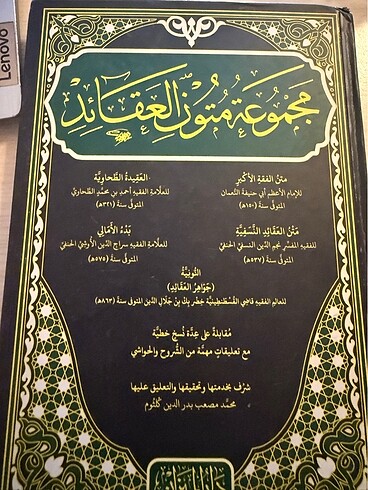 Lenovo
مجموعة متون العقائد
متن الفقه الأكبر
للإمام الأعظم أبي حنيفة النعمان
المتوفى سنة (١٥٠هـ)
العقيدة الطحاوية
للعلامة الفقيه أحمد بن محمد الطحاوي
المتوفى سنة (٣٢١هـ)
متن العقائد النسفية
للفقيه المفسر نجم الدين النسفي الحنفي
المتوفى سنة (٥٣٧هـ)
بدء الأمالي
للعلامة الفقيه سراج الدين الأوشي الحنفي
المتوفى سنة (٥٧٥هـ)
النونية
(جواهر العقائد)
للعالم الفقيه قاضي القسطنطينية خضر بك بن جلال الدين المتوفى سنة (٨٦٣هـ)
مقابلة على عدة نسخ خطية
مع تعليقات مهمة من الشروح والحواشي
شرف بخدمتها وتحقيقها والتعليق عليها
محمد مصعب بدر الدين كلثوم